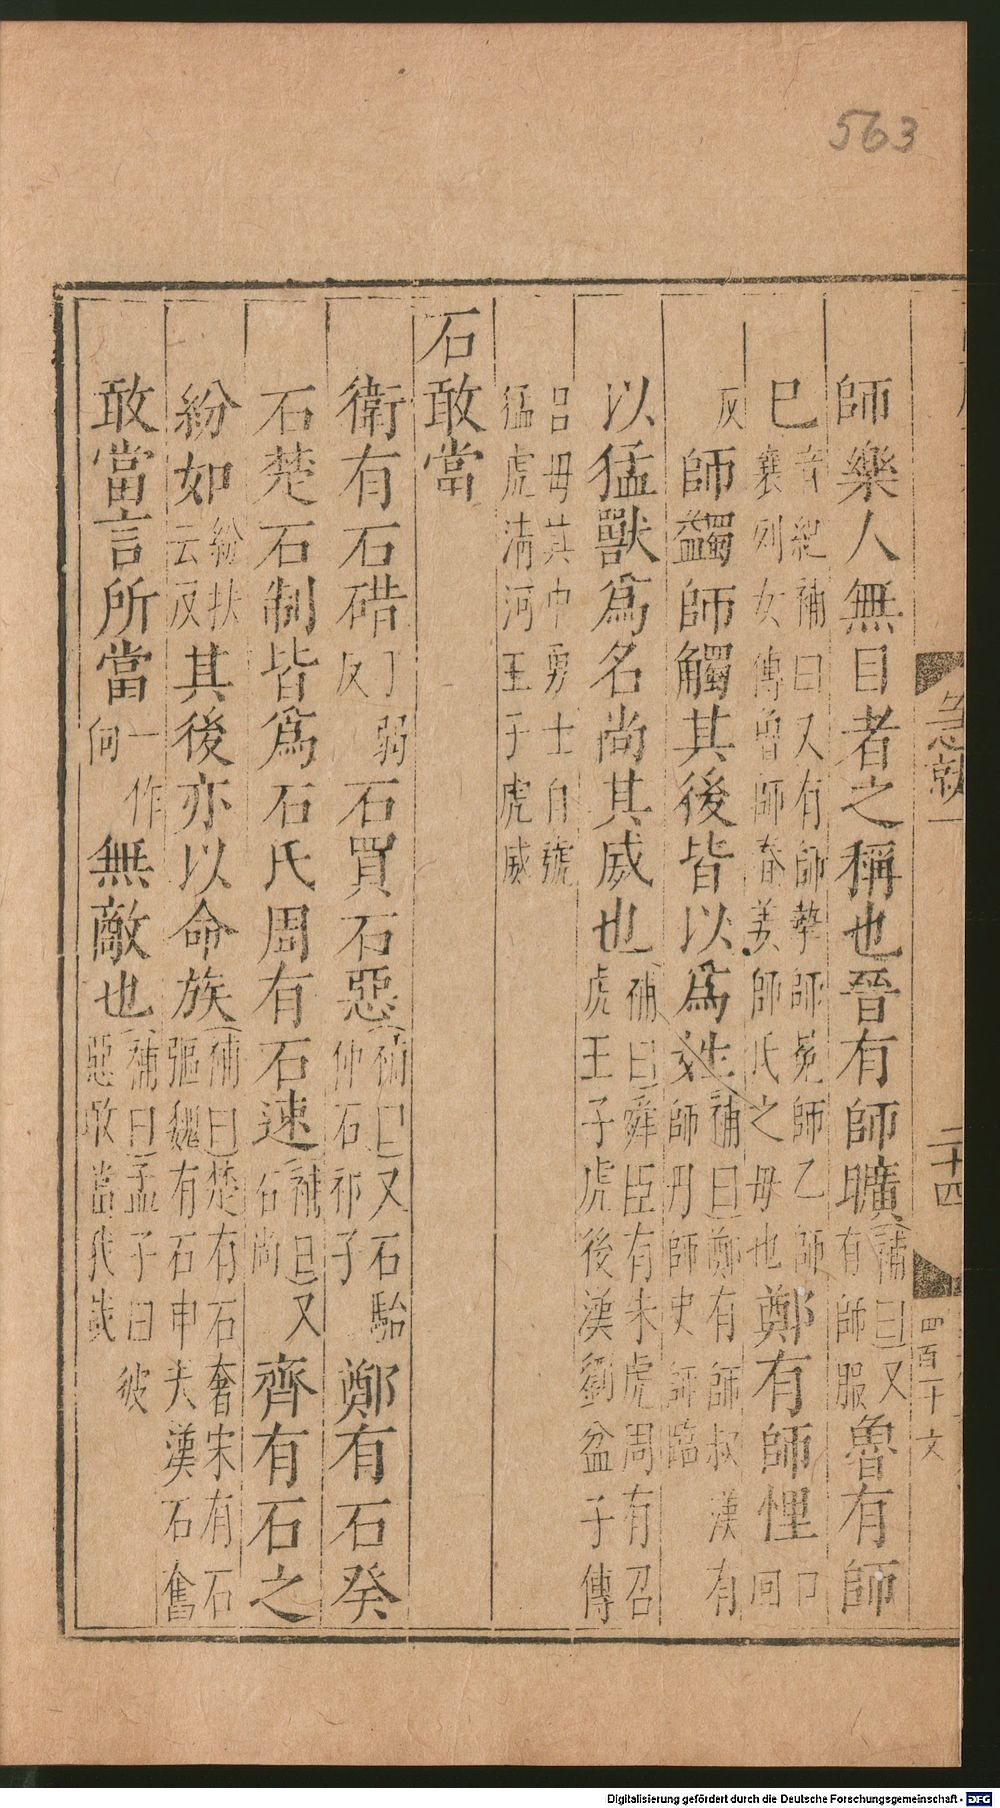 563
急就一
二十四
四百十文
師樂人無目者之稱也晉有師曠補曰又有師服魯有師
巳音紀補曰又有師摯師冕師乙師襄列女傳魯師春姜師氏之母也鄭有師悝口回
反師蠲師觸其後皆以為姓補曰鄭有師叔漢有師丹師史師臨
以猛獸為名尚其威也補曰舜臣有朱虎周有召虎王子虎後漢劉盆子傳
呂母其中勇士自號猛虎清河王子虎威
石敢當
衛有石碏丁弱反石買石惡補曰又石駘仲石祁子鄭有石癸
石楚石制皆為石氏周有石速補曰又石尚齊有石之
紛如紛扶云反其後亦以命族補曰楚有石奢宋有石彄魏有石申夫漢石奮
敢當言所當一作何無敵也補曰孟子曰彼惡敢當我哉
Digitalisierung gefördert durch die Deutsche Forschungsgemeinschaft - DFG